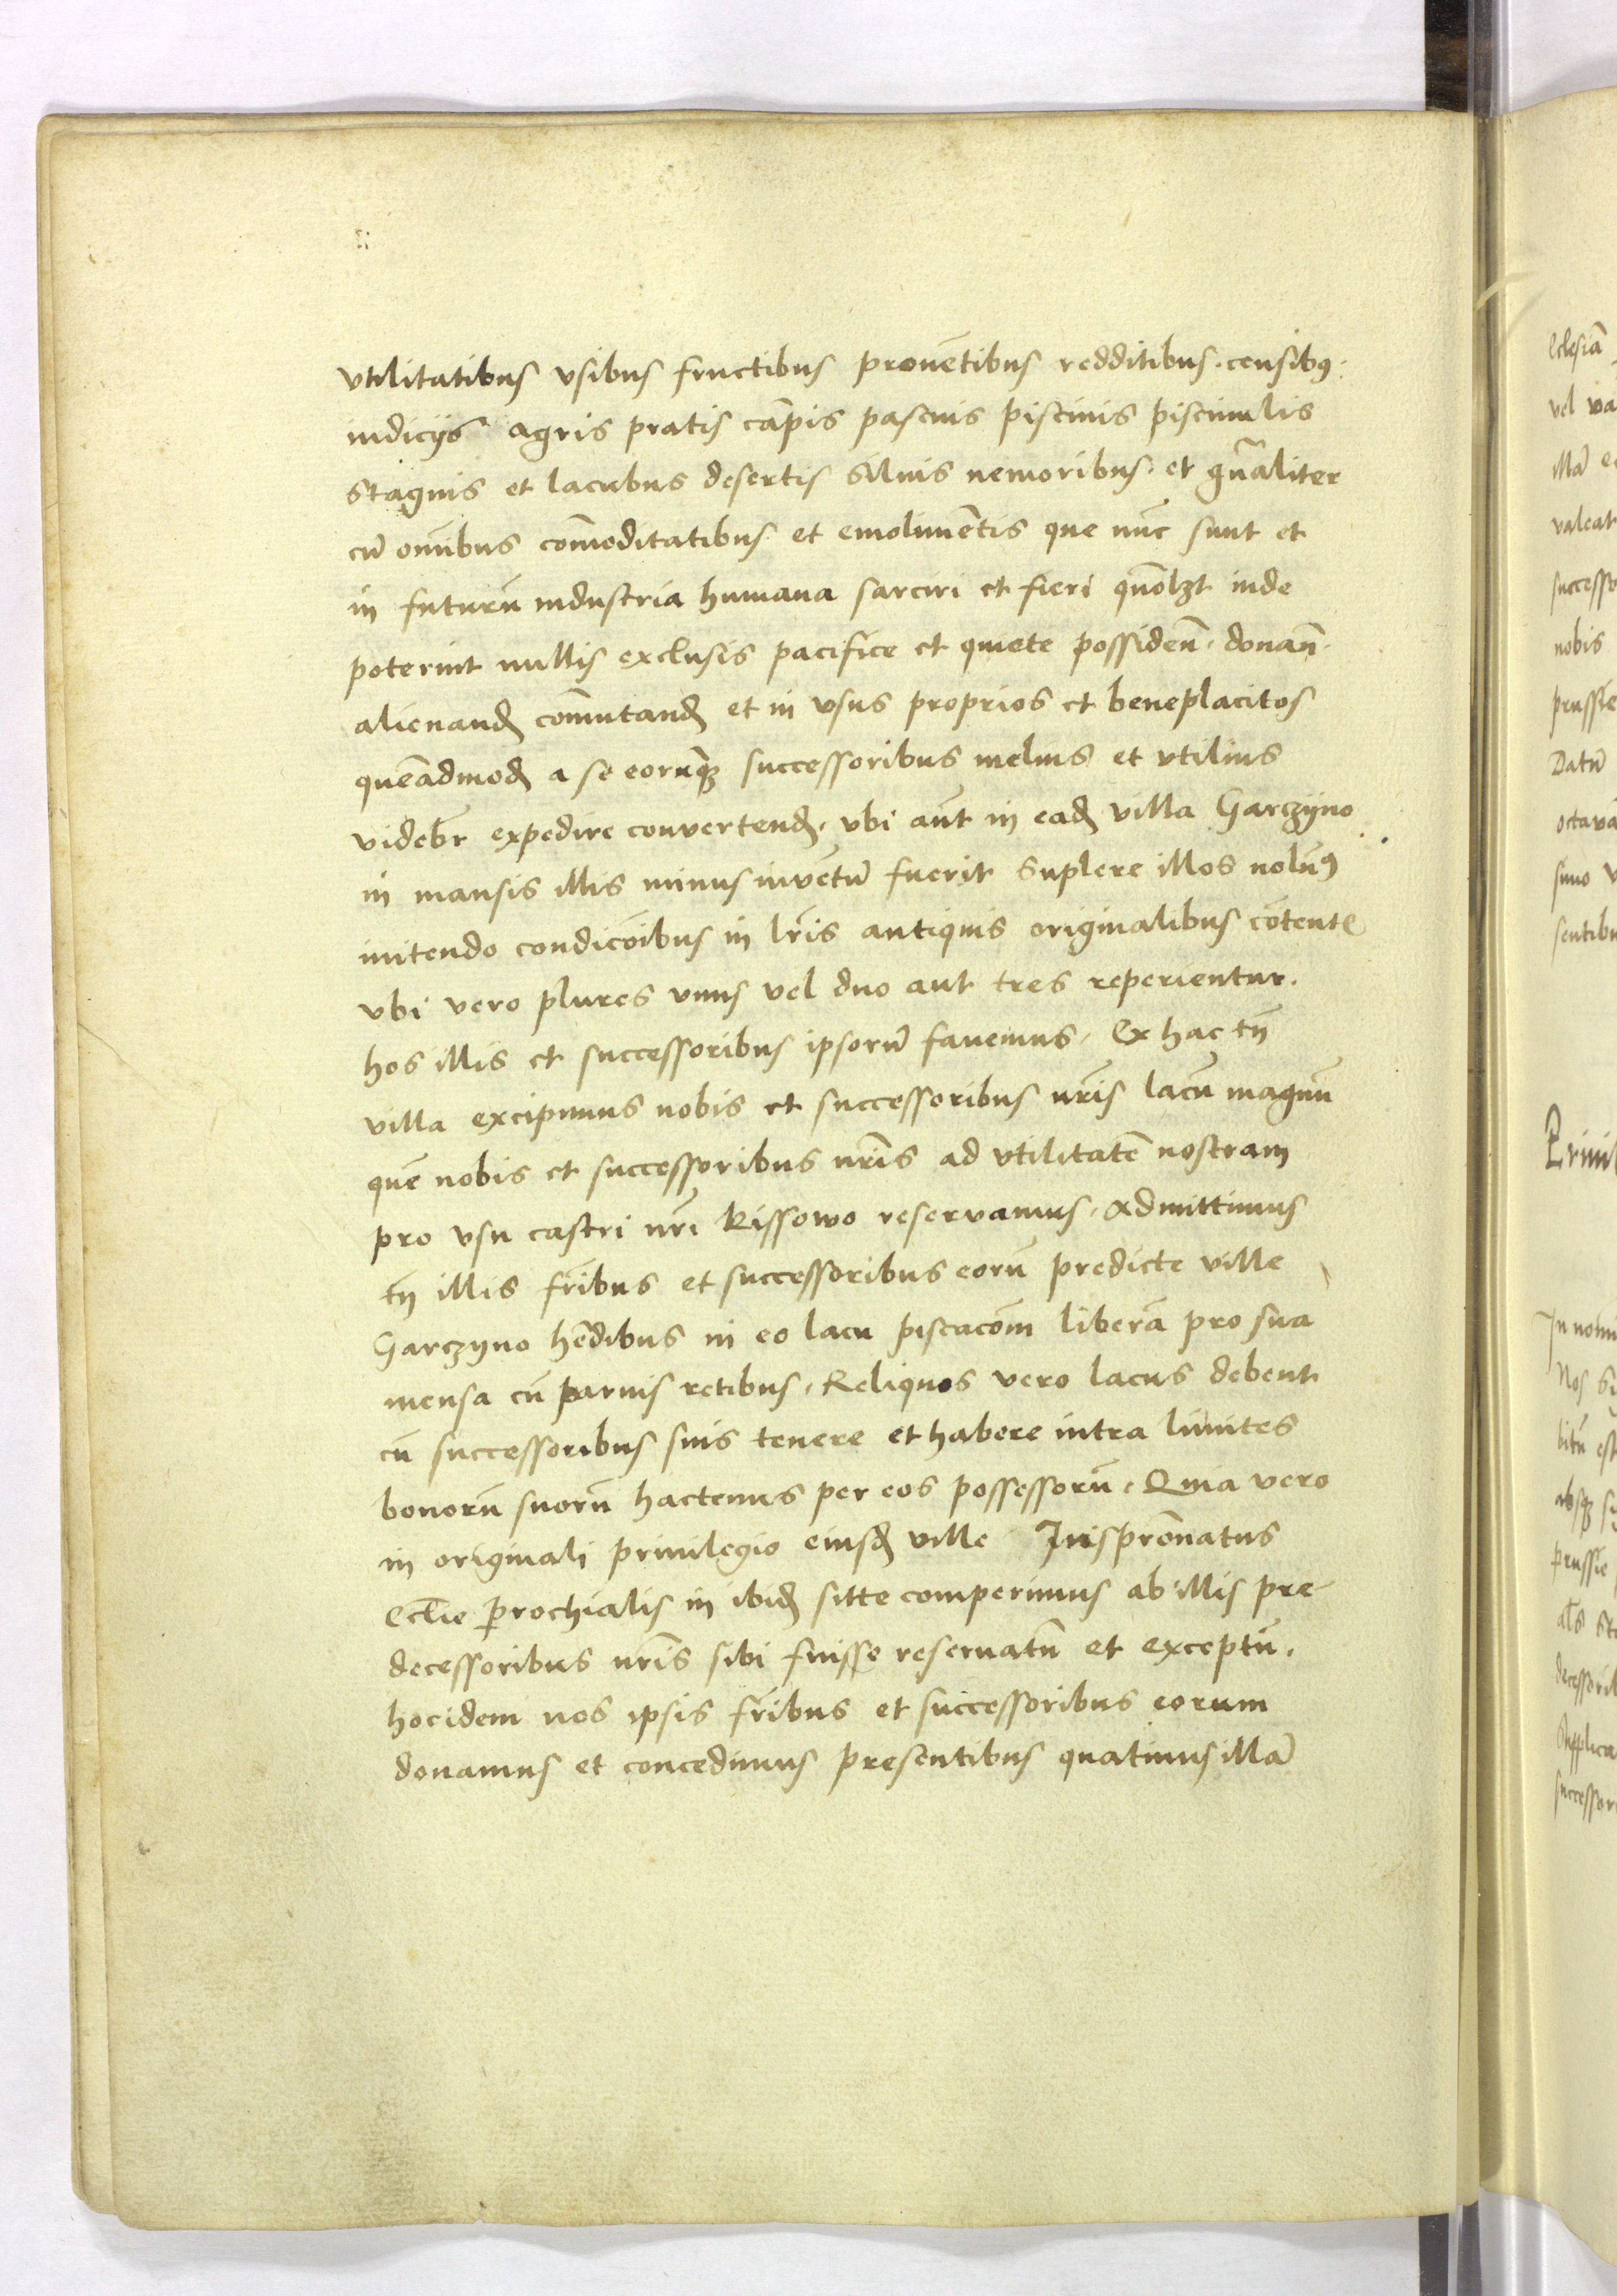 vtilitatibus vsibus fructibus prouētibus redditibus · censibꝯ ·
iudicijs agris pratis cāpis pascuis piscinis pisciuulis
stagnis et lacubus desertis siluis nemoribus · et gn̄aliter
cū om̄ibus com̄oditatibus et emolimētis que nūc sunt et
in futurū industria humana sarciri et fieri quōlꝫt inde
poterint nullis exclusis pacifice et quiete possideñ · donañ ·
alienanđ com̄utanđ et in vsus proprios et beneplacitos
quēadmođ a se eorūqꝫ successoribus melius et vtilius
videbr̄ expedire convertenđ · vbi aūt in eađ villa Garczyno
in mansis illis minus invētū fuerit suplere illos nolūꝯ
initendo condicōibus in lr̄is antiquis originalibus cōtente
vbi vero plures vnus vel duo aut tres reperientur ·
hos illis et successoribus ipsorū favemus · Ex hac tn̄
villa excipimus nobis et successoribus nr̄is lacū magnū
quē nobis et successoribus nr̄is ad vtilitatē nostram
pro vsu castri nr̄i Kissowo reservamus · Admittimus
tn̄ illis fr̄ibus et successoribus eorū predicte ville
Garczyno hēdibus in eo lacu piscacōm liberā pro sua
mensa cū paruis retibus · Reliquos vero lacus debent
cū successoribus suis tenere et habere intra limites
bonorū suorū hactenus per eos possessorū · Quia vero
in originali priuilegio eiusđ ville Juspronatus
Ecclīe ꝑrochialis in ibiđ sitte comperimus ab illis pre
decessoribus nr̄is sibi fuisse reseruatū et exceptū ·
hocidem nos ipsis fr̄ibus et successoribus eorum
donamus et concedimus presentibus quatinus illā
eclesiā
vel va
illā e
valeat
successo
nobis
prussie
Datū
octava
simo v
sentibu
Priuil
In nomi
Nos Si
bitū est
absqꝫ s
prussie
als St
decessorib
Supplica
successor